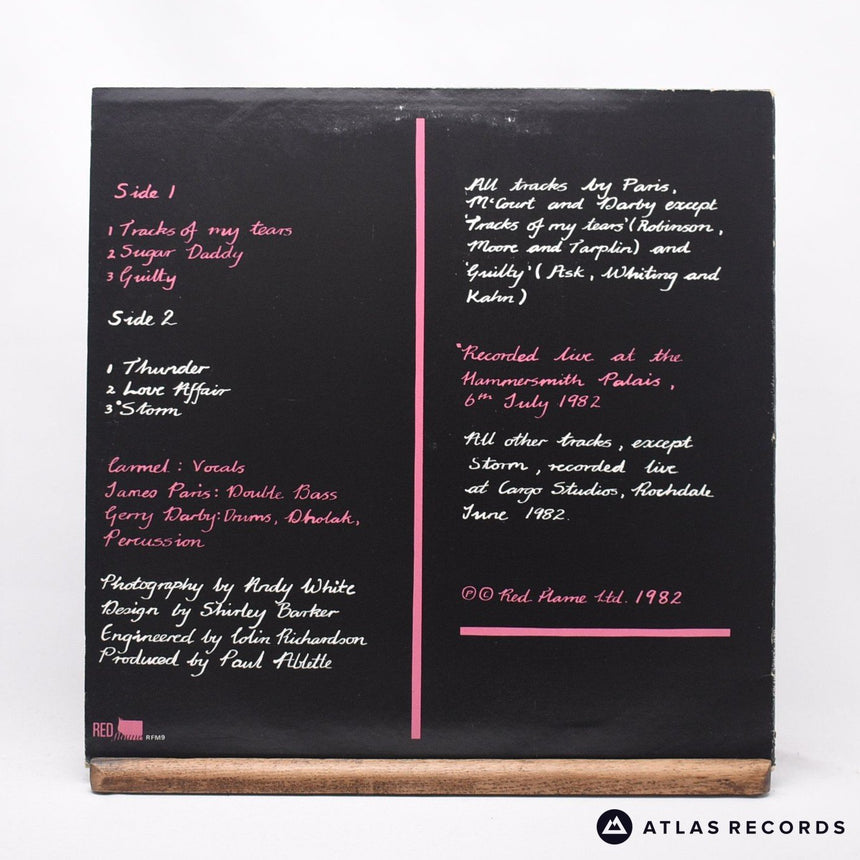 Side 1
1 Tracks of my tears
2 Sugar Daddy
3 Guilty
Side 2
1 Thunder
2 Love Affair
3 *Storm
Carmel : Vocals
James Paris : Double Bass
Gerry Darby : Drums, Dholak,
Percussion
Photography by Andy White
Design by Shirley Barker
Engineered by Colin Richardson
Produced by Paul Ablette
RED
flame RFM9
All tracks by Paris,
McCourt and Darby except
'Tracks of my tears' (Robinson,
Moore and Tarplin) and
'Guilty' ( Ask, Whiting and
Kahn )
*Recorded live at the
Hammersmith Palais,
6th July 1982
All other tracks, except
Storm, recorded live
at Cargo Studios, Rochdale
June 1982.
Ⓟ © Red Flame Ltd. 1982
ATLAS RECORDS